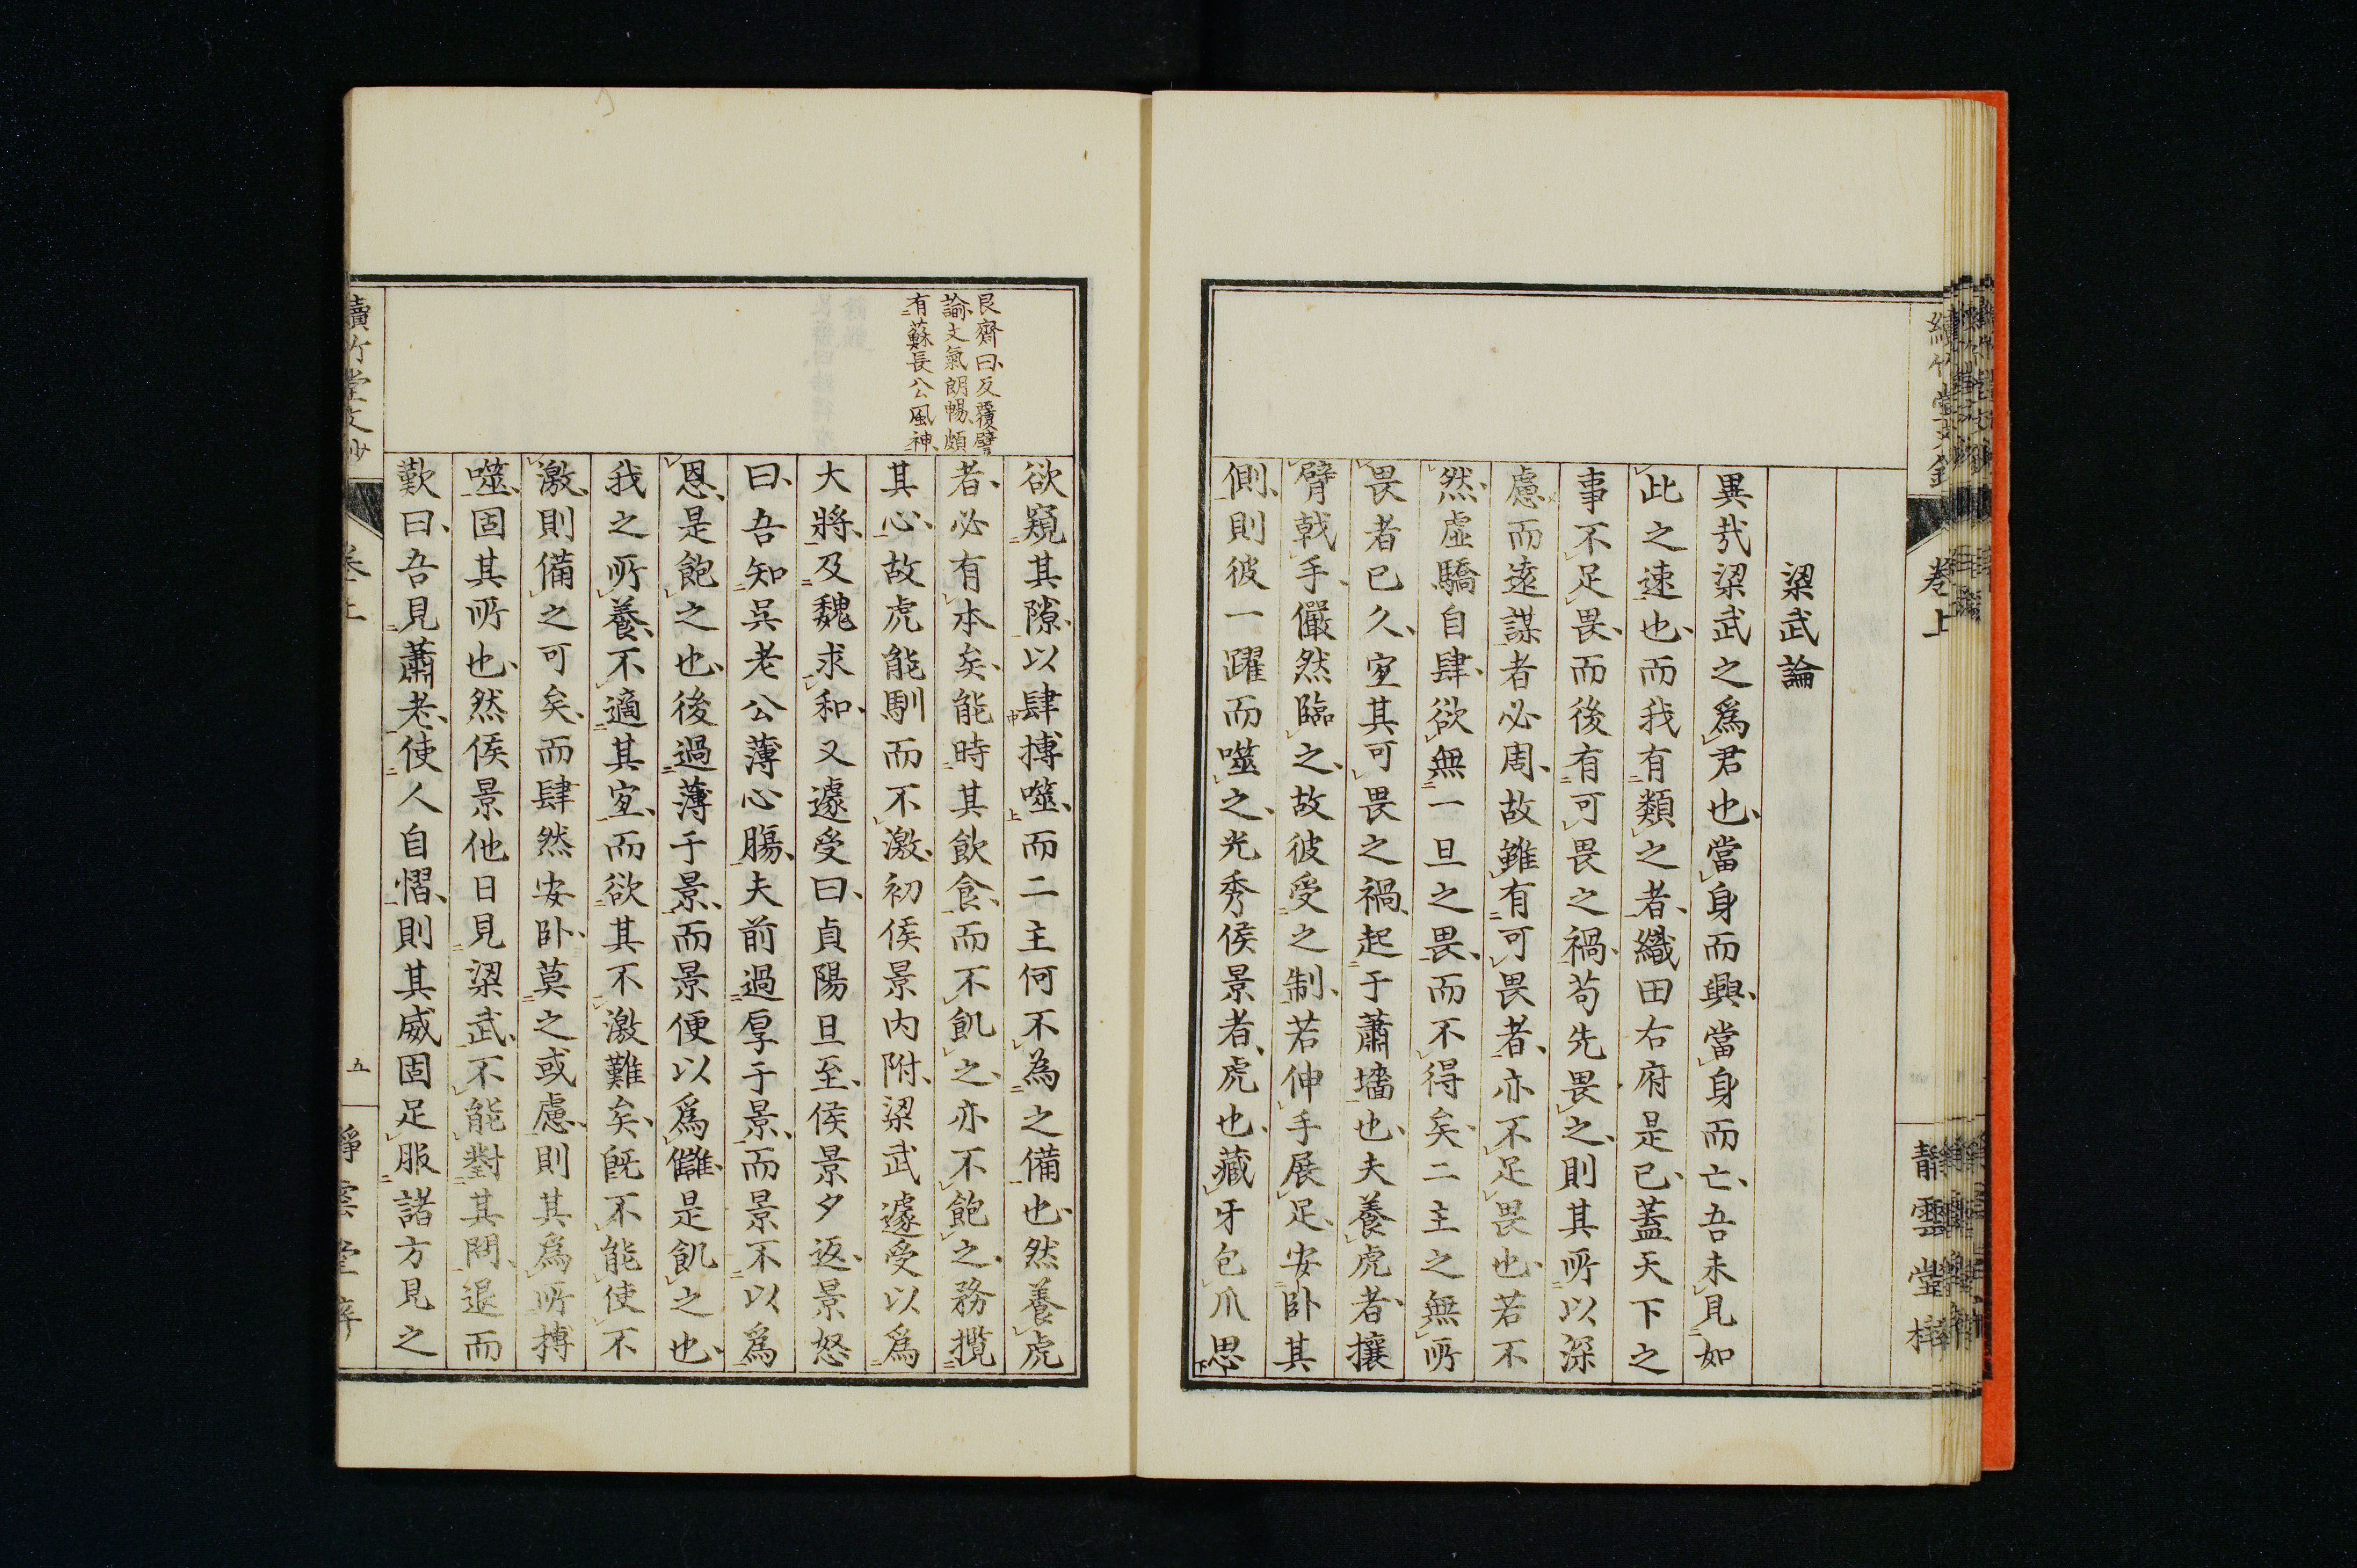 續竹堂文鈔
卷上
靜雲堂梓
梁武論
異哉梁武之爲君也當身而興當身而亡吾未見如
此之速也而我有類之者織田右府是已蓋天下之
事不足畏而後有可畏之禍苟先畏之則其所以深
慮而遠謀者必周故雖有可畏者亦不足畏也若不
然虛驕自肆欲無一旦之畏而不得矣二主之無所
畏者已久宜其可畏之禍起于蕭墻也夫養虎者攘
臂戟手儼然臨之故彼受之制若伸手展足安卧其
側則彼一躍而噬之光秀侯景者虎也藏牙包爪思
艮齋曰反覆譬
諭文氣朗暢頗
有蘇長公風神
欲窺其隙以肆搏噬而二主何不為之備也然養虎
者必有本矣能時其飲食而不飢之亦不飽之務攬
其心故虎能馴而不激初侯景内附梁武遽受以爲
大將及魏求和又遽受曰貞陽旦至侯景夕返景怒
曰吾知吳老公薄心膓夫前過厚于景而景不以爲
恩是飽之也後過薄于景而景便以爲讎是飢之也
我之所養不適其宜而欲其不激難矣旣不能使不
激則備之可矣而肆然安卧莫之或慮則其爲所搏
噬固其所也然侯景他日見梁武不能對其問退而
歎曰吾見蕭老使人自慴則其威固足服諸方見之
續竹堂文鈔
卷上
五
靜雲堂梓